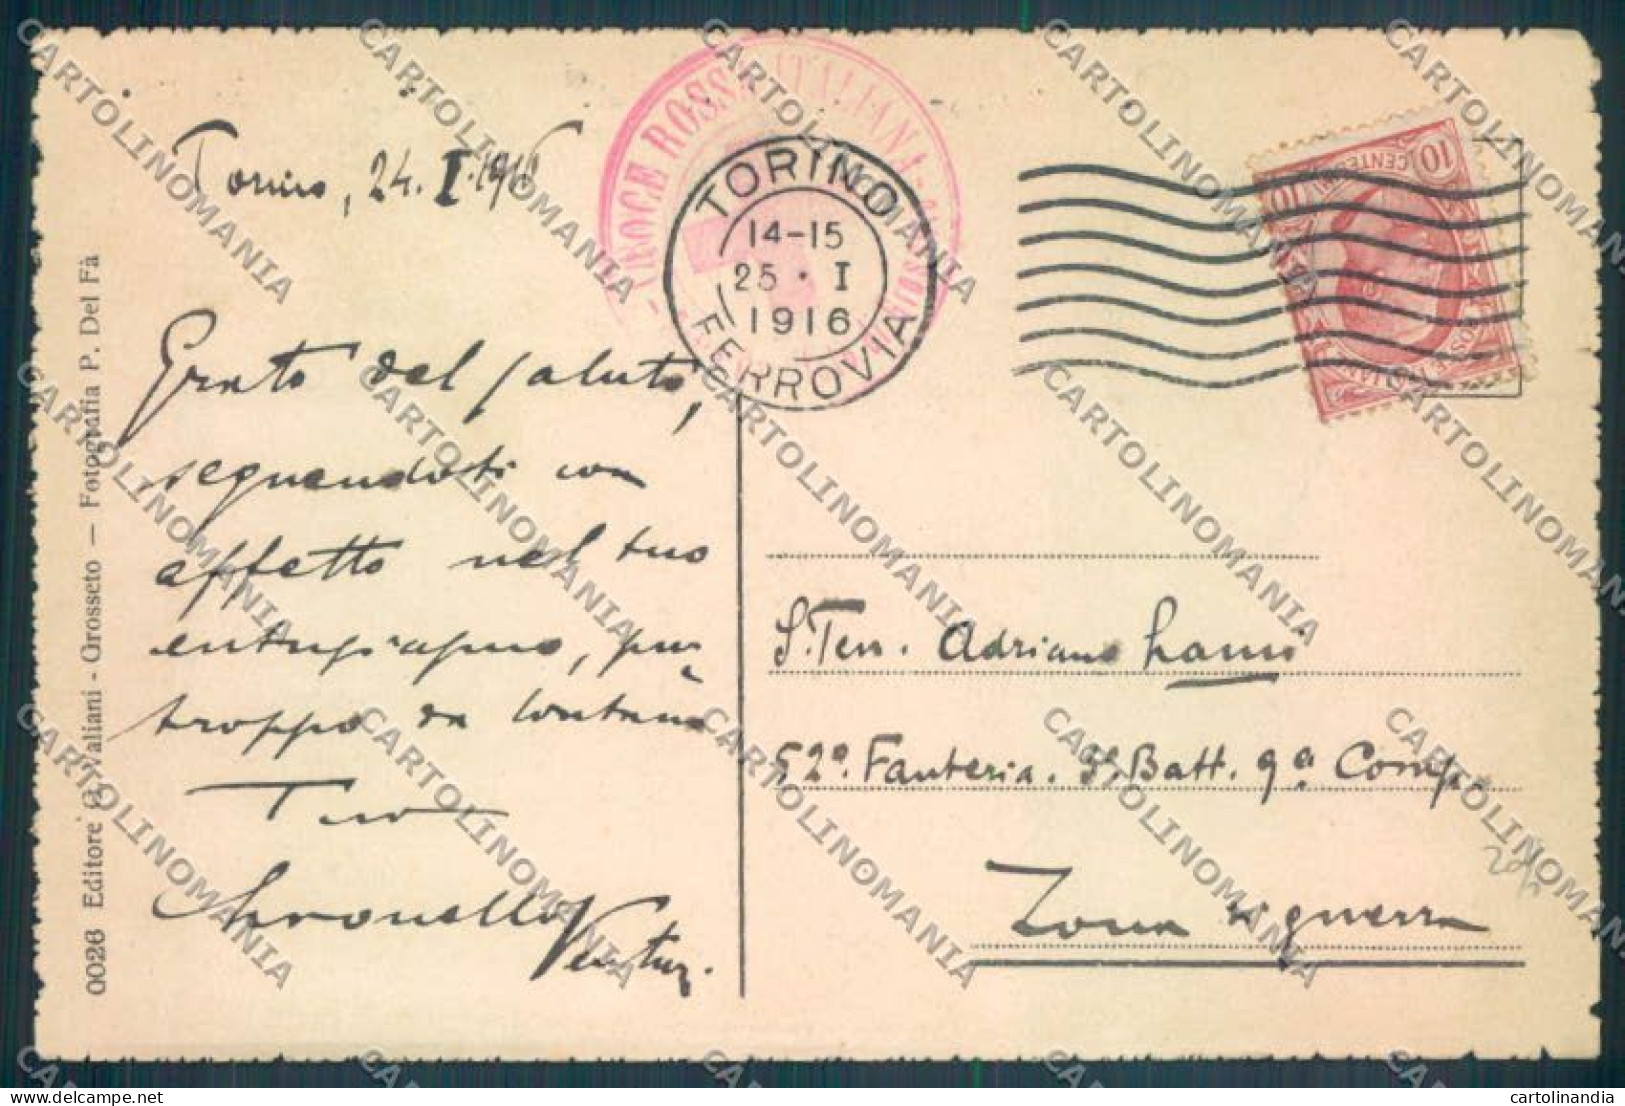 Torino, 24.I.1916
Grato del saluto,
seguendoti con
affetto nel tuo
pur
troppo da lontano
Tuo
CROCE ROSSA ITALIANA
TORINO
14-15
25 · I
1916
FERROVIA
10 CENTESIMI 10
S. Ten. Adriano
52º. Fanteria. 3º. Batt. 9ª Comp.
Zona di guerra
0026 Editore G. Valiani - Grosseto — Fotografia P. Del Fà
CARTOLINOMANIA
cartolinandia